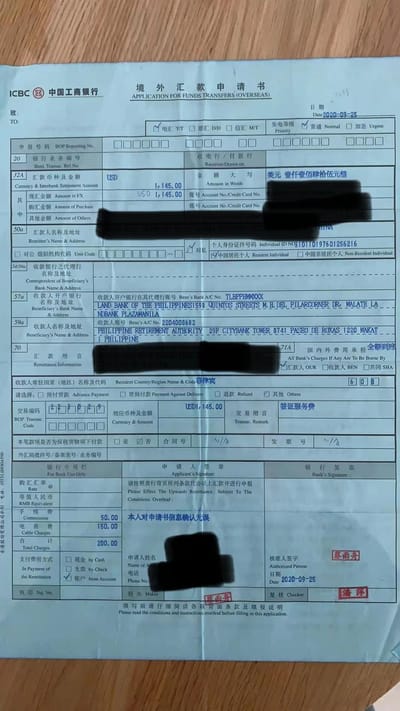 ICBC 中国工商银行
境外汇款申请书
APPLICATION FOR FUNDS TRANSFERS (OVERSEAS)
致:
TO:
日期
Date 2020-09-25
电汇 T/T 票汇 D/D 信汇 M/T
发电等级
Priority
普通 Normal 加急 Urgent
申报号码 BOP Reporting No.
20
收电行/付款行
Receiver/Drawn on
32A
汇款币种及金额
Currency & Interbank Settlement Amount
USD
1,145.00
金额大写
Amount in Words
美元 壹仟壹佰肆拾伍元整
其中
现汇金额 Amount in FX
USD 1,145.00
账号 Account No./Credit Card No.
购汇金额 Amount of Purchase
账号 Account No./Credit Card No.
其他金额 Amount of Others
50a
汇款人名称及地址
Remitter's Name & Address
对公 组织机构代码 Unit Code
对私
个人身份证件号码 Individual ID NO.
中国居民个人 Resident Individual
中国非居民个人 Non-Resident Individual
收款银行之代理行
名称及地址
Correspondent of Beneficiary's
Bank Name & Address
57a
收款人开户银行
名称及地址
Beneficiary's Bank Name & Address
收款人开户银行在其代理行账号 Bene's Bank A/C No. TLBPPHMMXXX
59a
收款人名称及地址
Beneficiary's Name & Address
收款人账号 Bene's A/C No.
PHILIPPINE RETIREMENT AUTHORITY 29F CITYBANK TOWER 8741 PASEO DE ROXAS 1220 MAKAT
I PHILIPPINE
70
汇款附言
Remittance Information
71A
国内外费用承担
All Bank's Charges If Any Are To Be Borne By
汇款人 OUR 收款人 BEN 共同 SHA
收款人常驻国家(地区)名称及代码 Resident Country/Region Name & Code
菲律宾
608
请选择:
预付货款 Advance Payment
货到付款 Payment Against Delivery
退款 Refund
其他 Others
交易编码
BOP Transac
Code
相应币种及金额
Currency & Amount
USD1,145.00
交易附言
Transac. Remark
签证服务费
本笔款项是否为保税货物项下付款
是 否
合同号
发票号
外汇局批件号/备案表号/业务编号
银行专用栏
For Bank Use Only
申请人签章
Applicant's Signature
银行签章
Bank's Signature
购汇汇率
Rate
等值人民币
RMB Equivalent
手续费
Commission
50.00
电报费
Cable Charges
150.00
合计
Total Charges
200.00
请按照贵行背页所列条款代办以上汇款并进行申报
Please Effect The Upwards Remittance, Subject To The
Conditions Overleaf:
本人对申请书信息确认无误
申请人姓名
电话
核准人签字
Authorized Person
日期
Date 2020-09-25
支付费用方式
In Payment of
the Remittance
现金 by Cash
支票 by Check
账户 from Account
经办 Maker
复核 Checker
填写前请仔细阅读各联背面条款及填报说明
Please read the conditions and instructions overleaf before filling in this application.